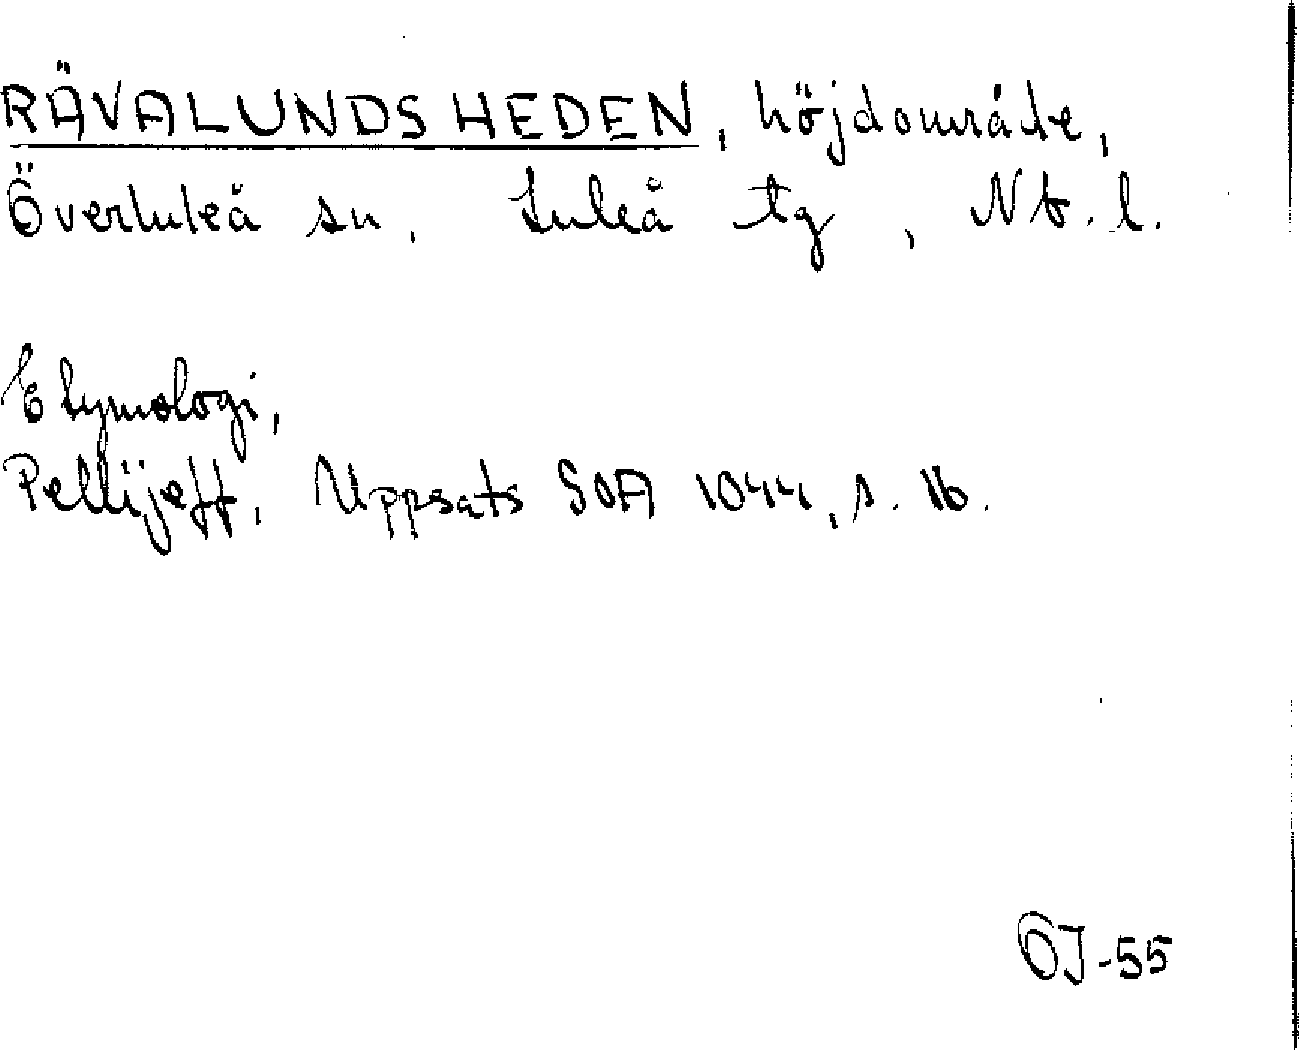 RÄVALUNDSHEDEN, höjdområde,
Överluleå sn, Luleå tg, Nb.l.
Etymologi,
Pellijeff, Uppsats SOA 1044, s. 16.
OJ-55